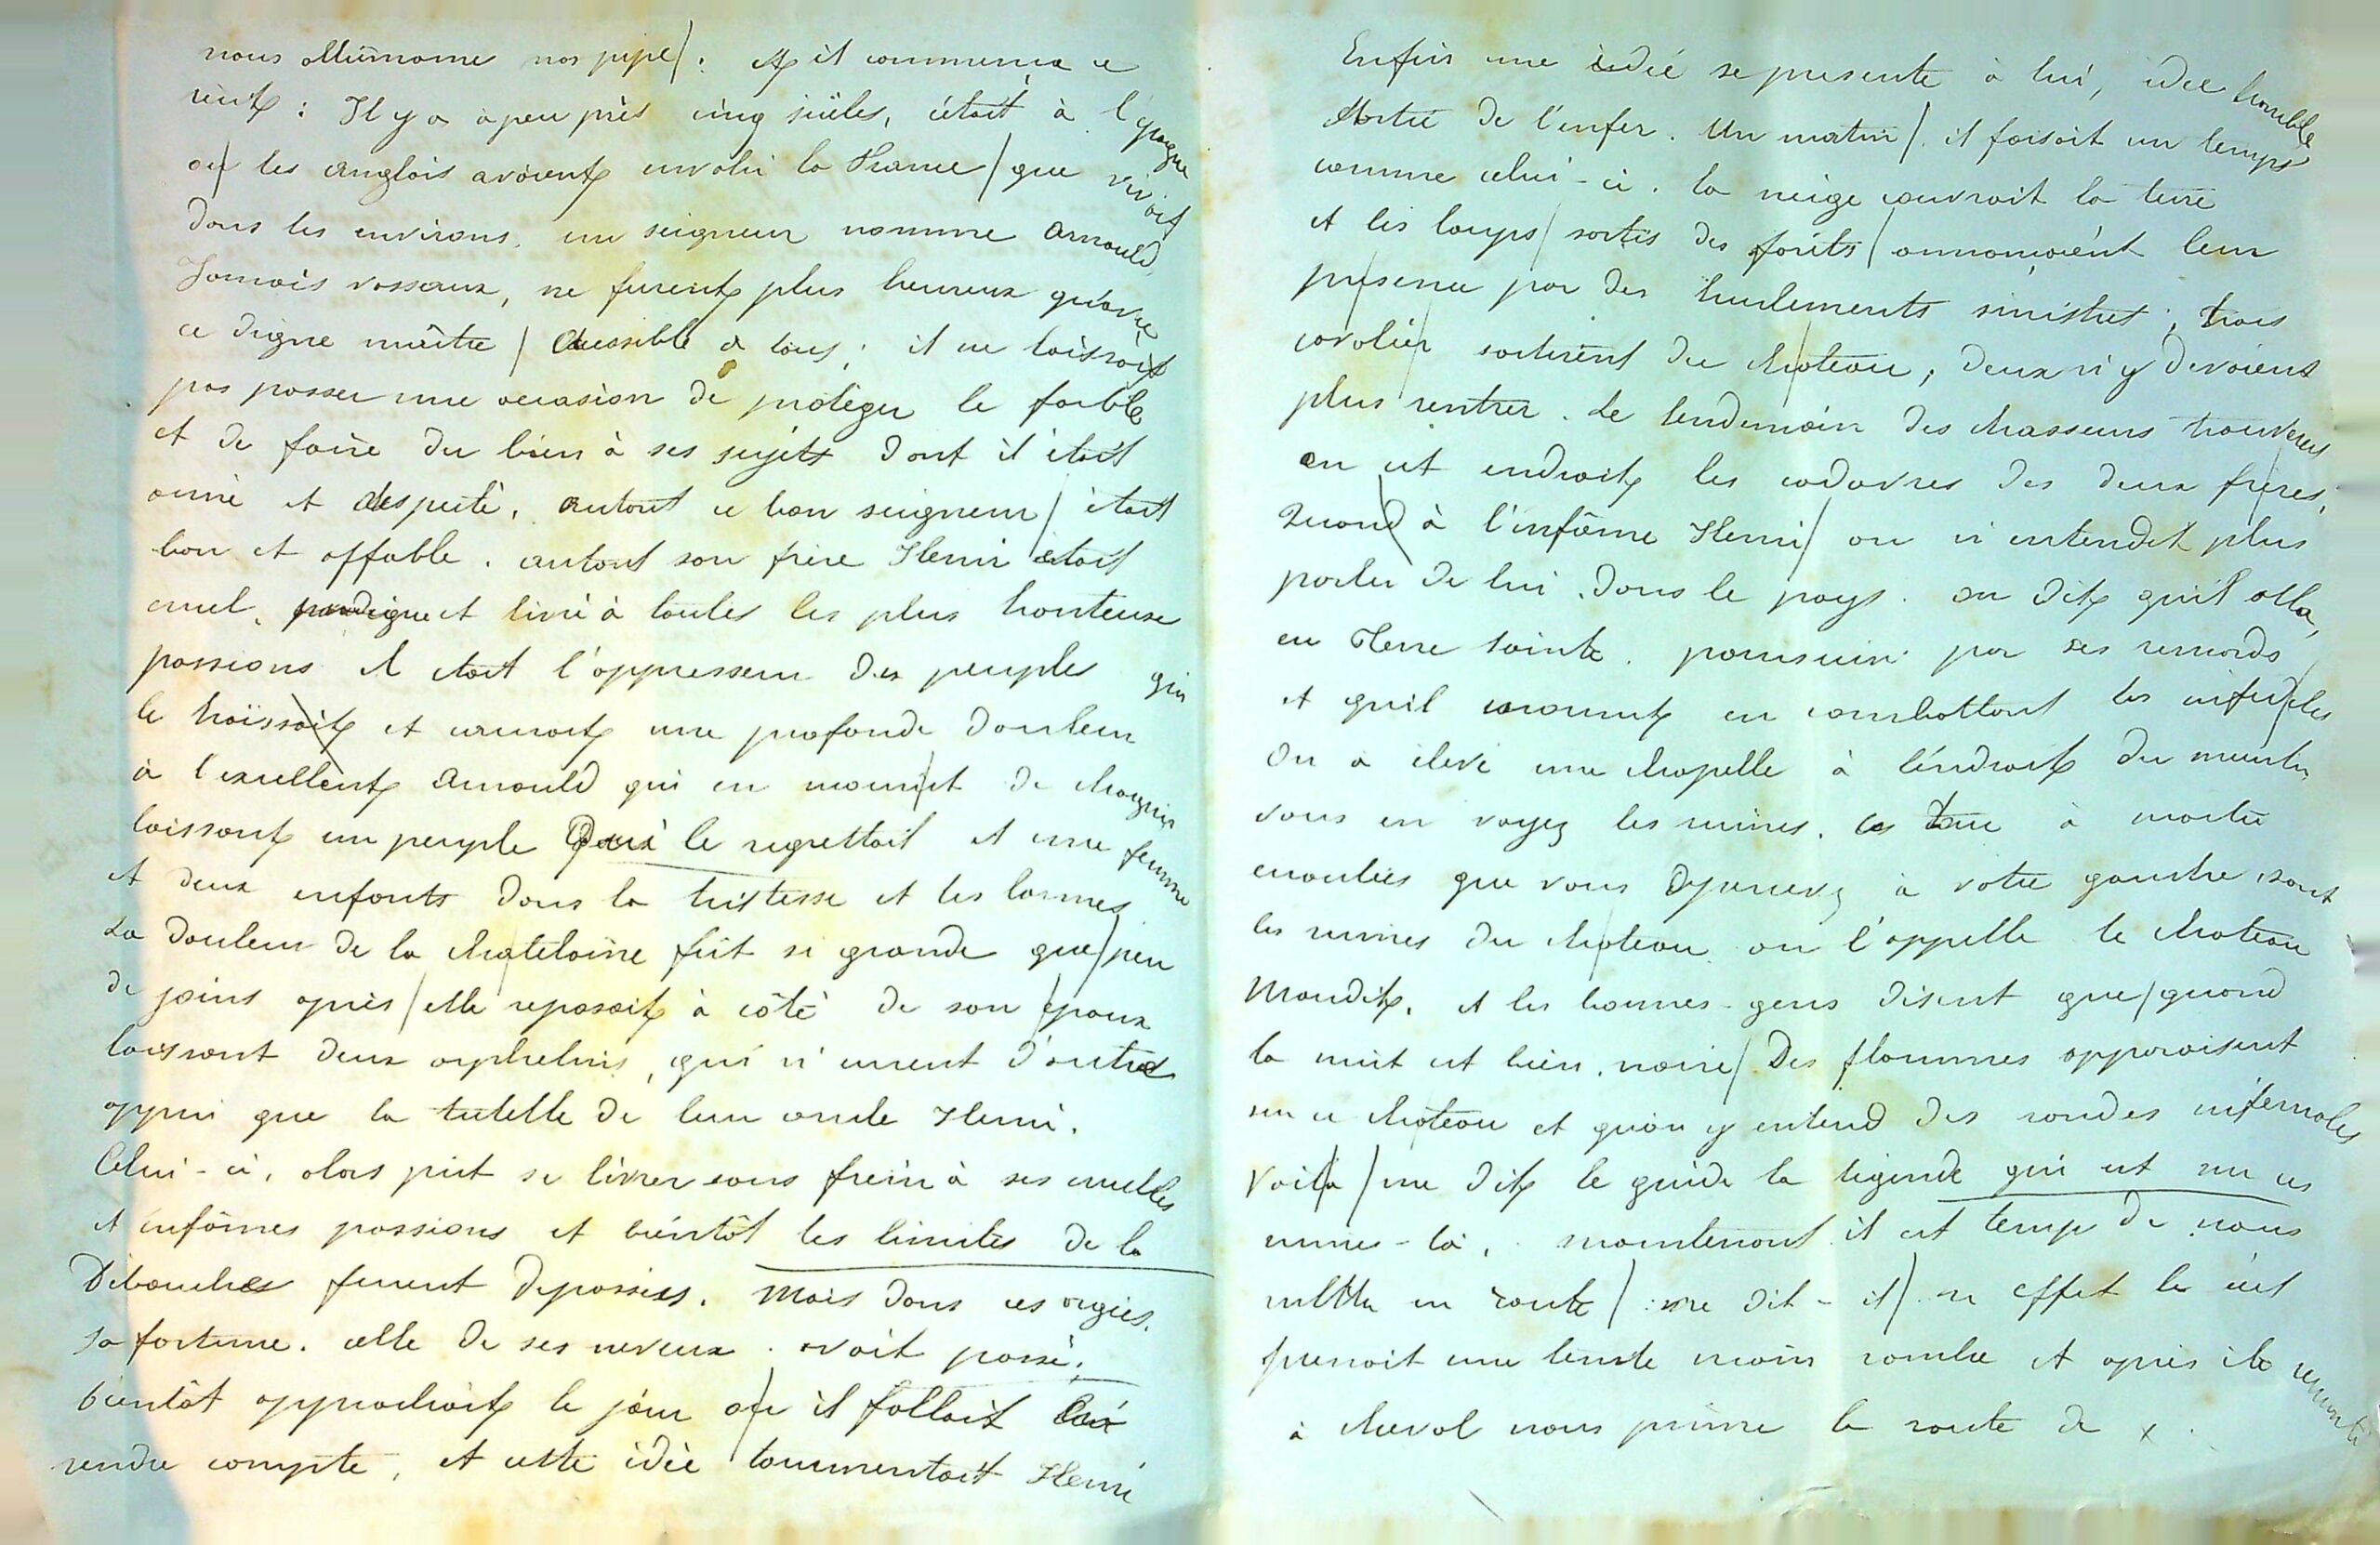 nous allumame nos pipe/. et il commença ce
récit : Il y a à peu près cinq siècles, c'était à l'époque
où les anglais avaient envahi la France / que vivait
dans les environs. un seigneur nommé Arnould.
Jamais vassaux, ne furent plus heureux qu'avec
ce digne maître / Accessible à tous ; il ne laissait
pas passer une occasion de protéger le faible
et de faire du bien à ses sujets dont il était
aimé et respecté. autant ce bon seigneur / était
bon et affable. autant son frère Henri était
cruel, prodigue et livré à toutes les plus honteuse
passions il était l'oppresseur des peuples qui
le haïssait et causait une profonde douleur
à l'excellent Arnould qui en mourut de chagrin
laissant un peuple Qui le regrettait et une femme
et deux enfants dans la tristesse et les larmes
La douleur de la chatelaine fut si grande que / peu
de jours après / elle reposait à côté de son époux
laissant deux orphelins, qui n'eurent d'autre
appui que la tutelle de leur oncle Henri.
Celui-ci, alors put se livrer sans frein à ses cruelles
et infâmes passions et bientôt les limites de la
Débauches furent dépassées. Mais dans ces orgies.
sa fortune. celle de ses neveux. avait passé.
bientôt approchait le jour où il fallait
rendre compte, et cette idée tourmentait Henri
Enfin une idée se presente à lui, idée horrible
sortie de l'enfer. Un matin /. il faisait un temps
comme celui-ci. la neige couvrait la terre
et les loups / sortis des forêts / annonçaient leur
présence par des hurlements sinistres ; trois
cavalier sortirent du chateau, deux n'y devaient
plus rentrer. Le lendemain des chasseurs trouverent
en cet endroit les cadavres des deux frères,
Quand à l'infâme Henri / on n'entendit plus
parler de lui. dans le pays. on dit qu'il alla,
en Terre Sainte. poursuivi par ses remords
et qu'il mourut en combattant les infidèles
On a élevé une chapelle à l'endroit du meurtre
vous en voyez les ruines. ces à moitié
écroulées que vous apercevez à votre gauche, sont
les ruines du chateau on l'appelle le chateau
Maudit. et les bonnes-gens disent que / quand
la nuit est bien. noire / Des flammes apparaisent
sur ce chateau et qu'on y entend des rondes infernales
Voila / me dit le guide la légende qui est sur ces
ruines-là, maintenant il est temp de nous
mettre en route / : me dit-il /. en effet le ciel
prenait une teinte moins sombre et après être remonté
à cheval nous prime la route de x.